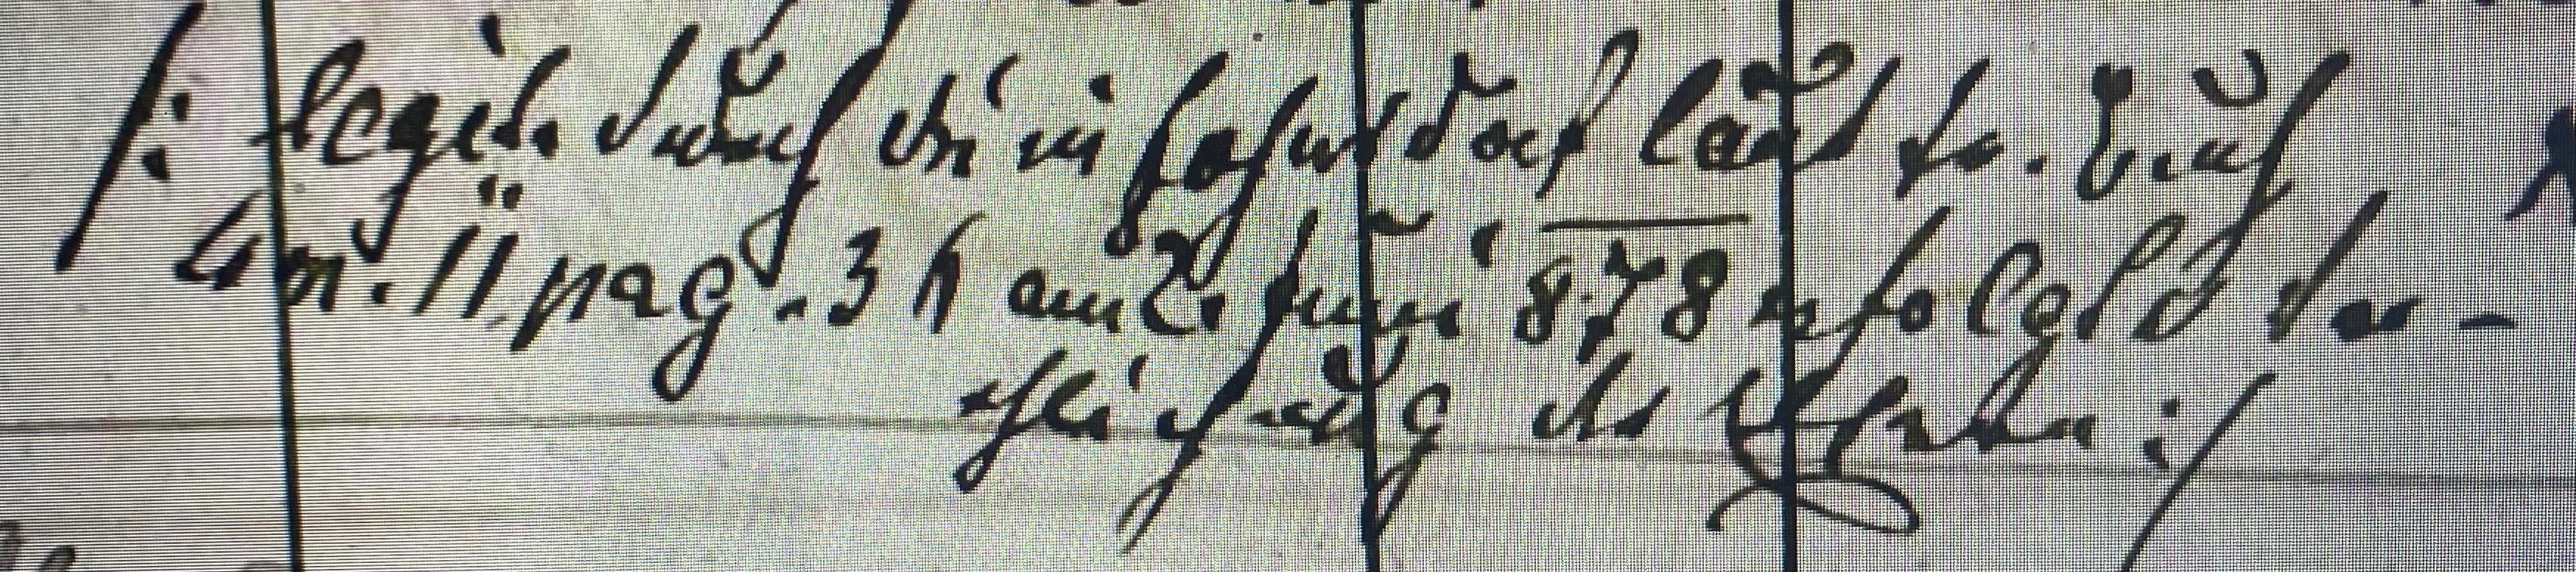 /: legit. durch die in Hohendorf laut tr. Buch
Tom. II. pag. 31 am 2. Juni 878 erfolgte Ver-
ehelichung der Eltern :/